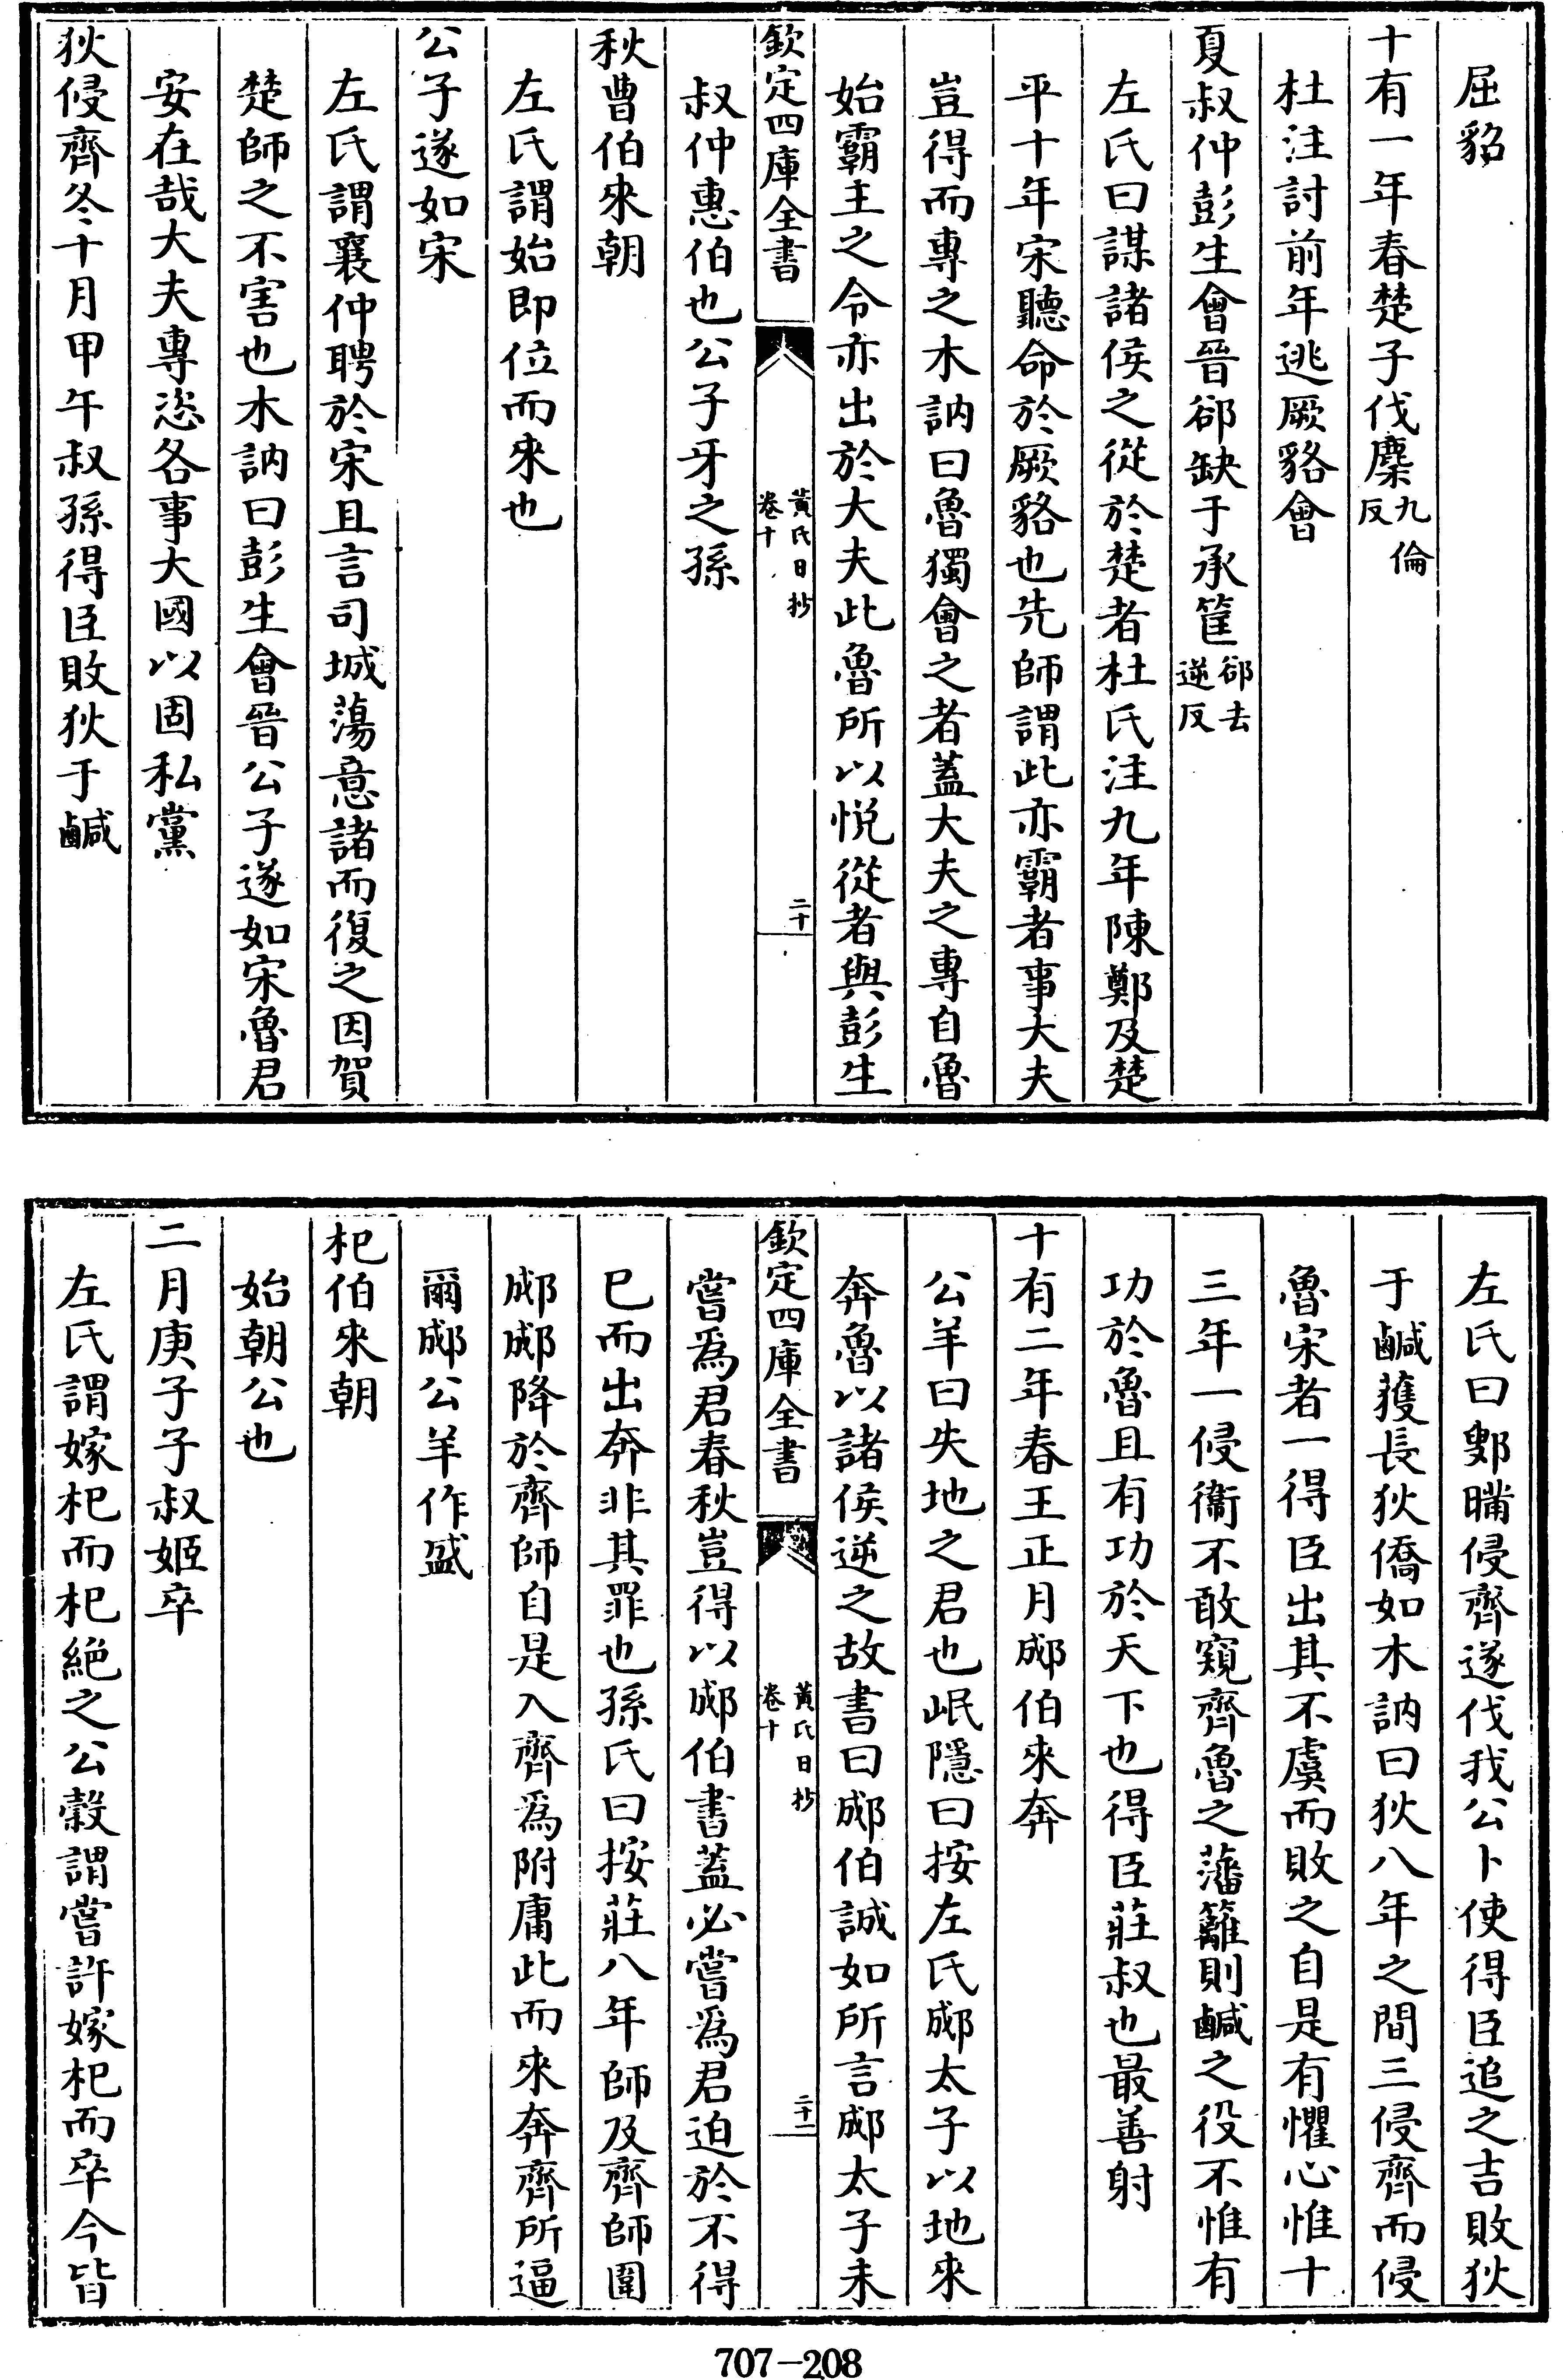 屈貂
十有一年春楚子伐麇九倫反
杜注討前年逃厥貉會
夏叔仲彭生會晉郤缺于承筐郤去逆反
左氏曰謀諸侯之從於楚者杜氏注九年陳鄭及楚
平十年宋聽命於厥貉也先師謂此亦霸者事大夫
豈得而專之木訥曰魯獨會之者蓋大夫之專自魯
始霸主之令亦出於大夫此魯所以悅從者與彭生
欽定四庫全書
黃氏日抄
卷十
二十
叔仲惠伯也公子牙之孫
秋曹伯來朝
左氏謂始即位而來也
公子遂如宋
左氏謂襄仲聘於宋且言司城蕩意諸而復之因賀
楚師之不害也木訥曰彭生會晉公子遂如宋魯君
安在哉大夫專恣各事大國以固私黨
狄侵齊冬十月甲午叔孫得臣敗狄于鹹
左氏曰鄋瞞侵齊遂伐我公卜使得臣追之吉敗狄
于鹹獲長狄僑如木訥曰狄八年之間三侵齊而侵
魯宋者一得臣出其不虞而敗之自是有懼心惟十
三年一侵衞不敢窺齊魯之藩籬則鹹之役不惟有
功於魯且有功於天下也得臣莊叔也最善射
十有二年春王正月郕伯來奔
公羊曰失地之君也岷隱曰按左氏郕太子以地來
奔魯以諸侯逆之故書曰郕伯誠如所言郕太子未
欽定四庫全書
黃氏日抄
卷十
二十一
嘗爲君春秋豈得以郕伯書蓋必嘗爲君迫於不得
已而出奔非其罪也孫氏曰按莊八年師及齊師圍
郕郕降於齊師自是入齊爲附庸此而來奔齊所逼
爾郕公羊作盛
杞伯來朝
始朝公也
二月庚子子叔姬卒
左氏謂嫁杞而杞絕之公穀謂嘗許嫁杞而卒今皆
707-208